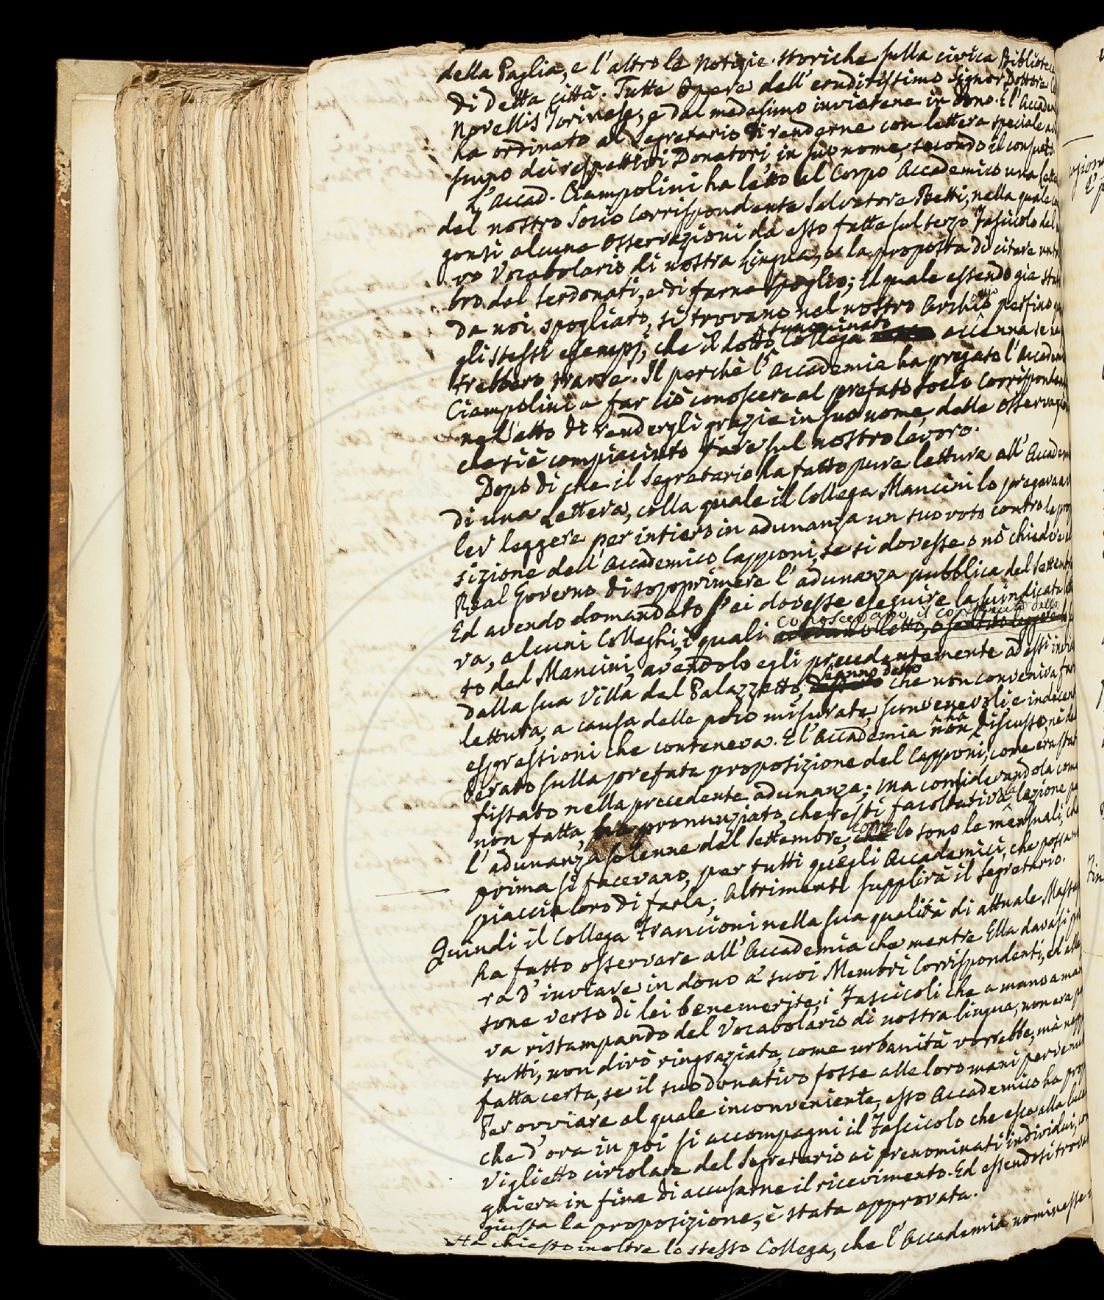 della Paglia, e l'altro le Notizie storiche sulla civica Bibliote
di detta città. Tutte Opere dell'eruditissimo Signor Dottore
Novellis Torinese, e dal medesimo inviatene in dono. E l'Accade
ha ordinato al Segretario di renderne con lettera speciale a
scuno dei rispettivi Donatori in suo nome, secondo il consueto
L'Accad. Ciampolini ha letto al Corpo Accademico una Lette
del nostro Socio Corrispondente Salvatore Betti, nella quale
gonsi alcune Osservazioni da esso fatte sul terzo Fascicolo del
vo Vocabolario di nostra Lingua, e la proposta di citare un
bro del Serdonati, e di farne spoglio; il quale essendo già sta
da noi, spogliato, si trovano nel nostro Archivio perfino
gli stessi esempj, che il dotto Collega sunnominato accenna se
trebbero trarre. Il perchè l'Accademia ha pregato l'Accadem
Ciampolini a far ciò conoscere al prefato Socio Corrisponden
nell'atto di rendergli grazie in suo nome, delle Osservazio
che si è compiaciuto fare sul nostro lavoro.
Dopo di che il Segretario ha fatto pure lettura all'Accadem
di una Lettera, colla quale il Collega Mancini lo pregava
ler leggere per intiero in adunanza un suo voto contro la pro
sizione dell'Accademico Capponi, se si dovesse o nò chiedere
Real Governo di sopprimere l'adunanza pubblica del Settemb
Ed avendo domandato s'ei dovesse eseguire la suindicata
va, alcuni Colleghi, i quali conoscevano il contenuto dello
to del Mancini, avendolo egli precedentemente ad essi
dalla sua Villa del Palazzetto, hanno detto che non conveniva far
lettura, a causa delle poco misurate, sconvenevoli, e indecen
espressioni che conteneva. E l'Accademia non ha discusso, nè
berato sulla prefata proposizione del Capponi, come era sta
fissato nella precedente adunanza; ma considerandola com
non fatta, ha pronunziato, che resti facoltativa la lezione
l'adunanza solenne del Settembre, come lo sono le mensuali, ch
prima si facevano, per tutti quegli Accademici, che possa
piaccia loro di farla; altrimenti supplirà il Segretario.
Quindi il Collega Francioni nella sua qualità di attuale Massa
ha fatto osservare all'Accademia che mentre Ella davasi
ra d'inviare in dono a' suoi Membri Corrispondenti, ed
sone verso di lei benemerite, i Fascicoli che a mano a man
va ristampando del Vocabolario di nostra lingua, non era
tutti, non dirò ringraziata, come urbanità vorrebbe, mà
fatta certa, se il suo donativo fosse alle loro mani perven
Per ovviare al quale inconveniente, esso Accademico ha pro
che d'ora in poi si accompagni il Fascicolo che esce alla luce
Viglietto circolare del Segretario ai prenominati individui,
ghiera in fine di accusarne il ricevimento. Ed essendosi trova
giusta la proposizione, è stata approvata.
Ha chiesto inoltre lo stesso Collega, che l'Accademia nominasse